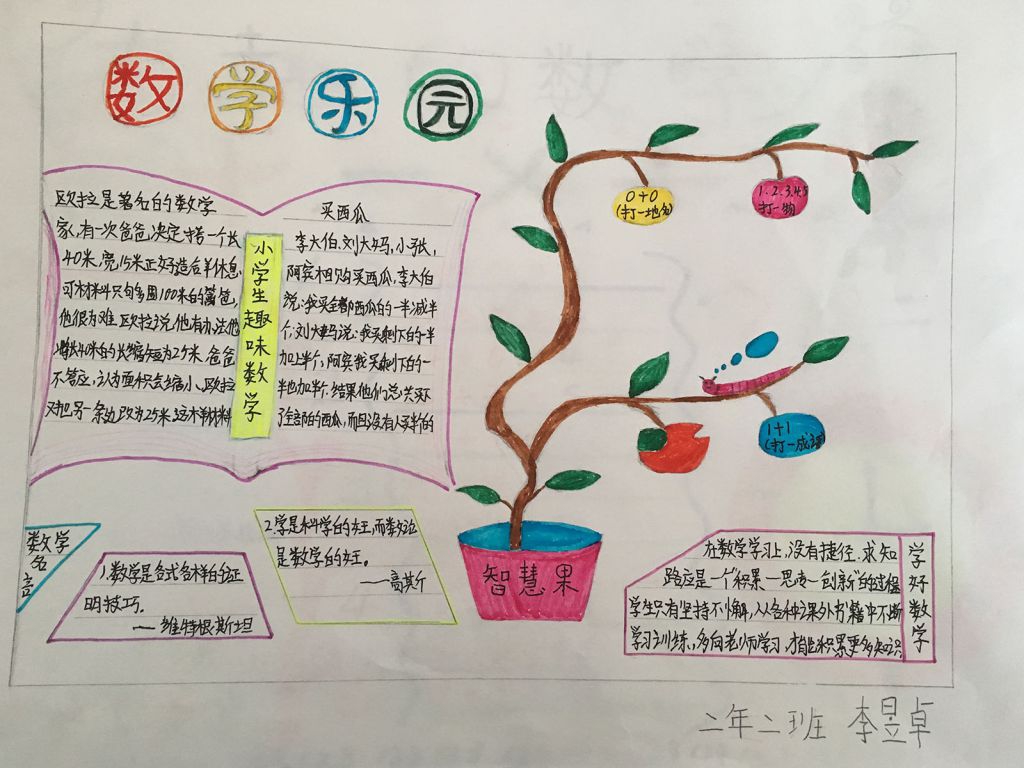 数学乐园
欧拉是著名的数学
家,有一次爸爸决定搭一个长
40米,宽15米正好造后羊休息
可材料只够多围100米的篱笆,
他很为难.欧拉说,他有办法他
将长40米的长缩短为25米.爸爸
不答应,认为面积会缩小.欧拉
又把另一条边改为25米.这木料材料
小学生趣味数学
买西瓜
李大伯,刘大妈,小张,
阿宾相购买西瓜,李大伯
说:我买全部西瓜的一半减半
个;刘大妈说:我买剩下的一半
加上半个,阿宾我买剩下的一
半也加半个.结果他们总共买
了全部的西瓜,而且没有人买半的
0+0
(打一地名)
1.2.3.4.5
打一物
1+1
(打一成语)
智慧果
数学
名言
1.数学是各式各样的证
明技巧.
——维特根斯坦
2.学是科学的女王,而数论
是数学的女王。
——高斯
在数学学习上,没有捷径.求知
路应是一个"积累—思考—创新"的过程
学生只有坚持不懈,从各种课外书籍中不断
学习训练,多向老师学习,才能积累更多知识
学好数学
二年二班 李昱卓